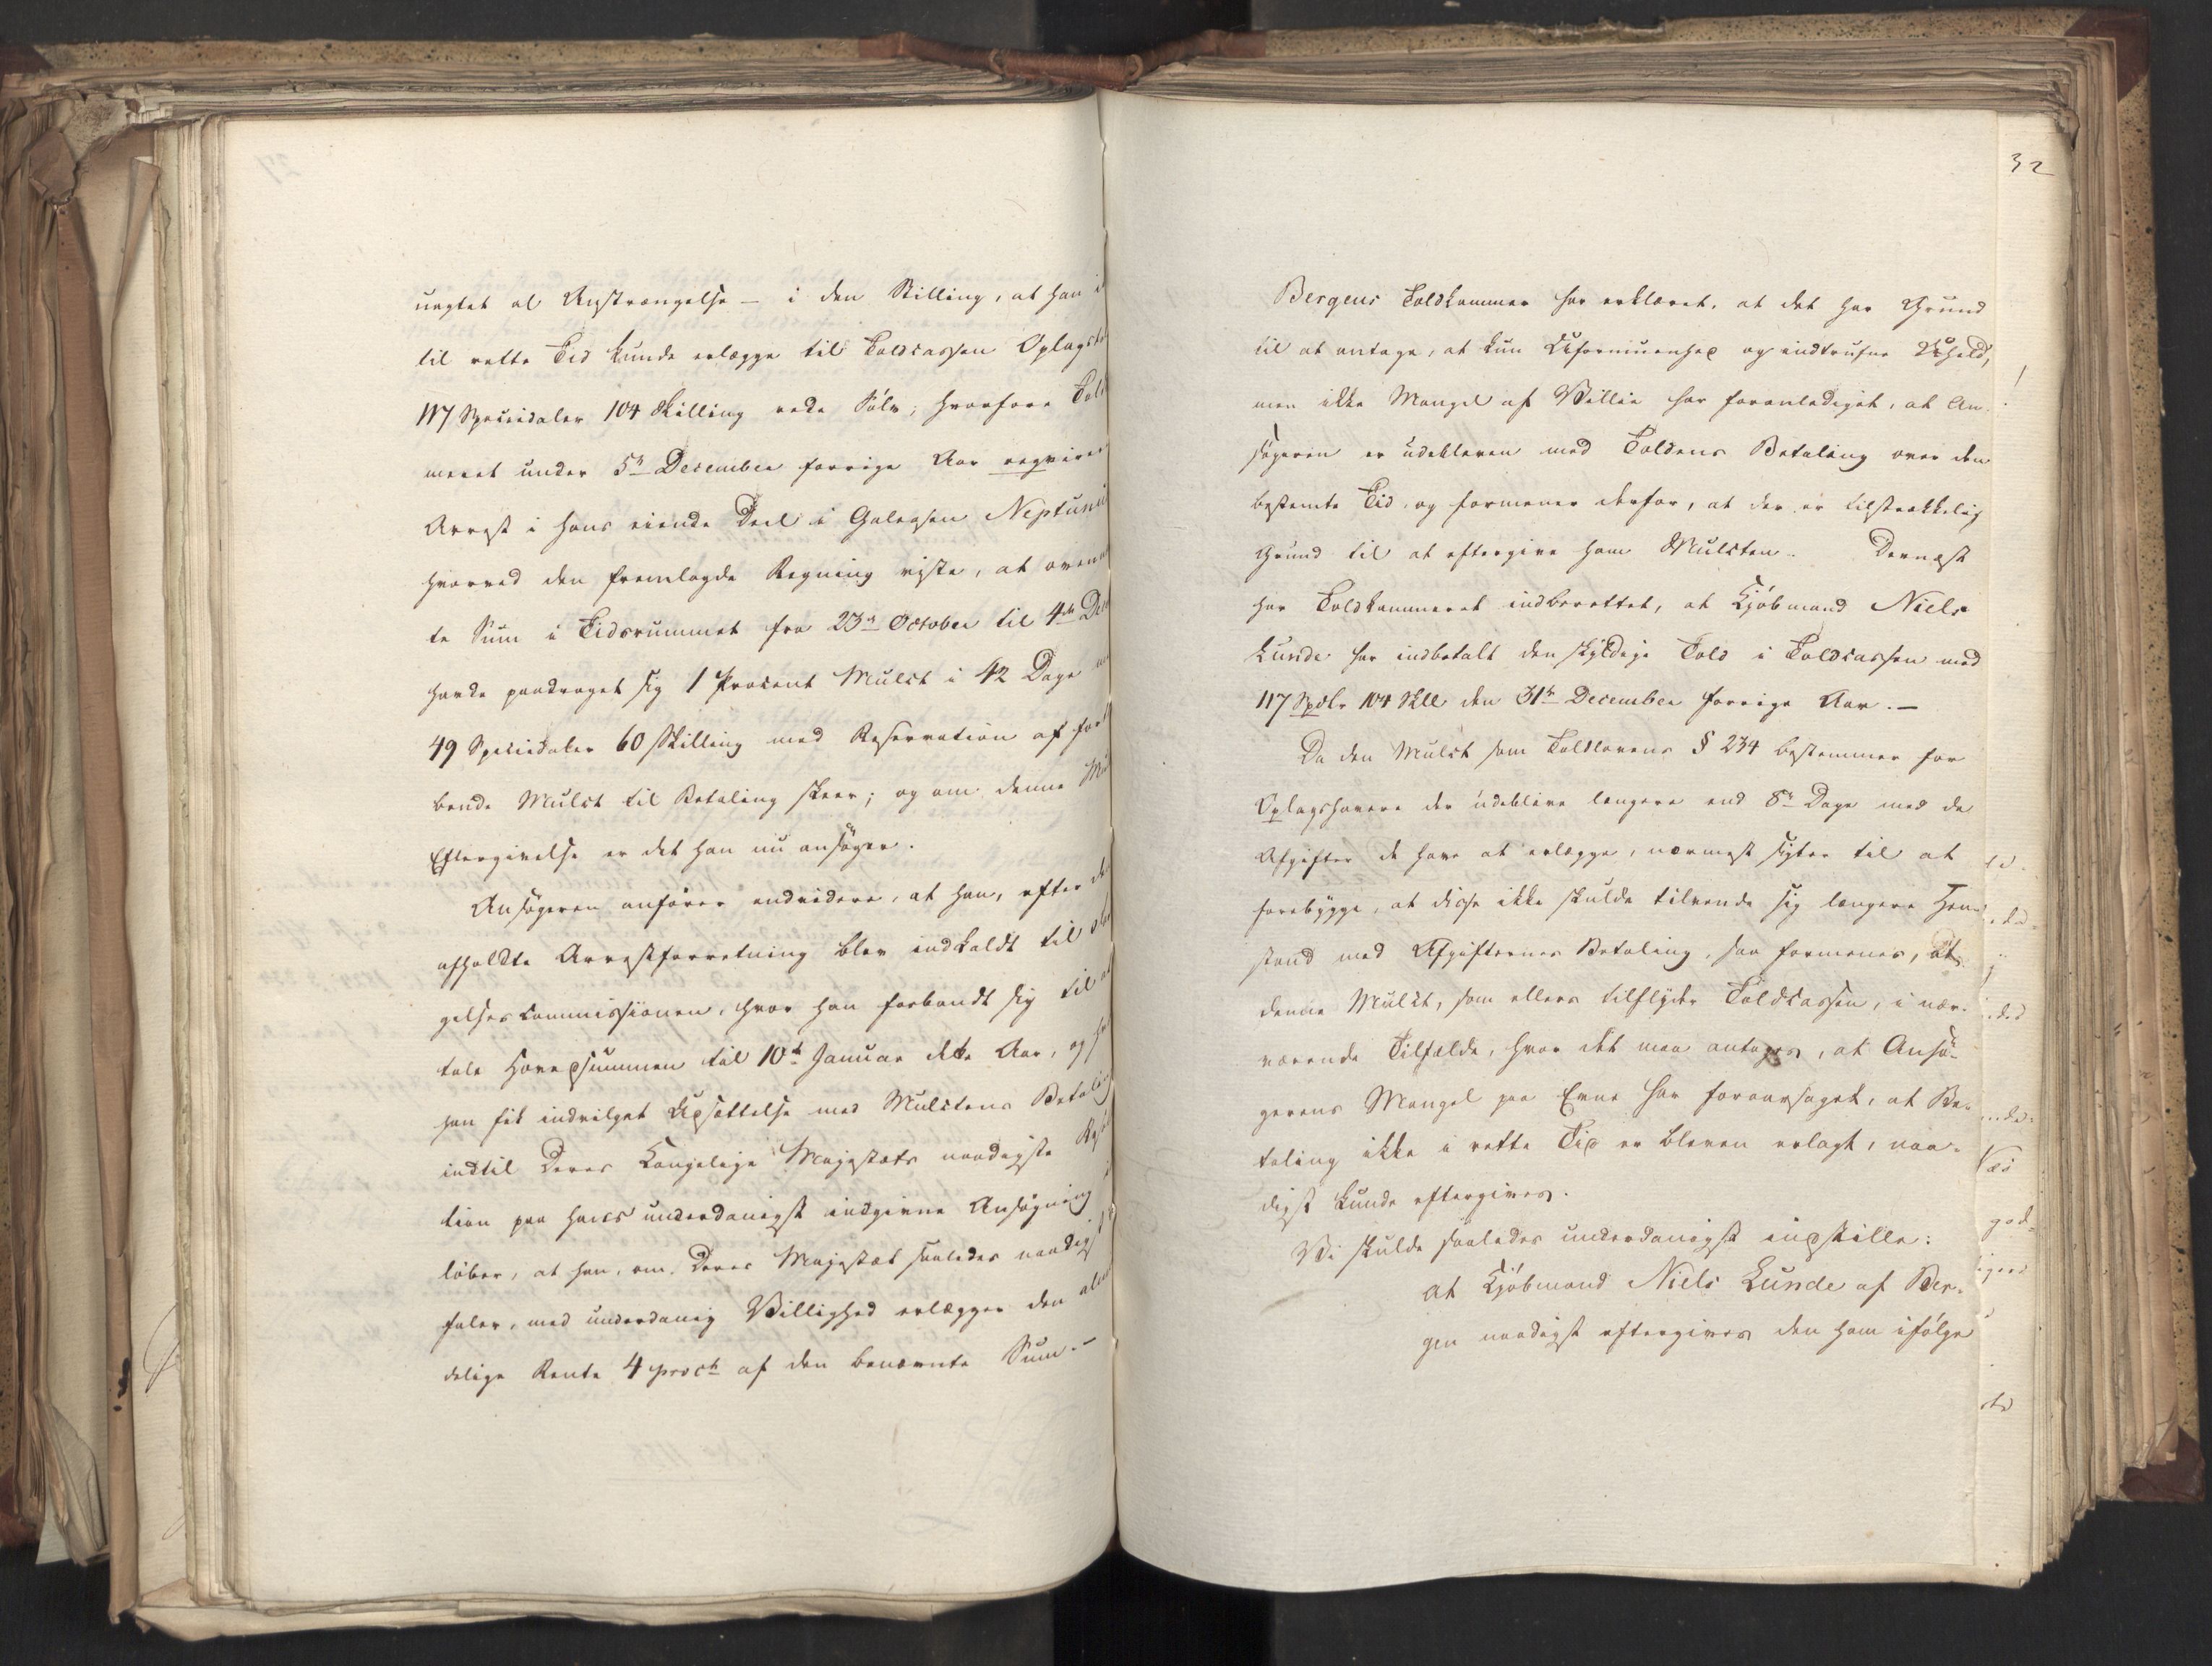 uagtet al Anstrængelse – i den Stilling, at han i
til rette Tid kunde erlægge til Toldcassen Oplags
117 Speciedaler 104 Skilling rede Sølv; hvorfore Told
meret under 5te December forrige Aar reqvirer
Arrest i hans eiende Deel i Galeasen Neptunu
hvorved den fremlagde Regning viste, at oven
te Sum i Tidsrummet fra 23de October til 4de De
havde paadraget sig 1 Procent Mulct i 42 Dage
49 Speciedaler 60 Skilling med Reservation af for
bende Mulct til Betaling skeer; og om denne Mu
Eftergivelse er det han nu ansøger.
Ansøgeren anfører endvidere, at han, efter de
afholdte Arrestforretning blev indkaldt til
gelsescommissionen, hvor han forbandt sig til at
tale Hovedsummen til 10de Januar dette Aar, og
han fik indvilget Udsættelse med Mulctens Betaling
indtil Deres Kongelige Majestæts naadigste Resol
tion paa hans underdanigst indgivne Ansøgning
løber, at han, om Deres Majestæt saaledes naadigst
faler, med underdanig Villighed erlægger den
delige Rente 4 proct af den benævnte Sum.–
32
Bergens Toldkammer har erklæret, at det har Grund
til at antage, at kun Uformuenhed og indtrufne Uheld,
men ikke Mangel af Villie har foranlediget, at An-
søgeren er udebleven med Toldens Betaling over den
bestemte Tid, og formener derfor, at der er tilstrækkelig
Grund til at eftergive ham Mulcten. Dernæst
har Toldkammeret indberettet, at Kjøbmand Niels
Lunde har indbetalt den skyldige Told i Toldcassen med
117 Spdlr 104 Skll den 31te December forrige Aar.–
Da den Mulct som Toldlovens § 234 bestemmer for
Oplagshavere der udeblive længere end 8te Dage med de
Afgifter de have at erlægge, nærmest sigter til at
forebygge, at disse ikke skulde tilvende sig længere Hen-
stand med Afgifternes Betaling, saa formenes, at
denne Mulct, som ellers tilflyder Toldcassen, i nær-
værende Tilfælde, hvor det maa antages, at Ansø-
gerens Mangel paa Evne har foraarsaget, at Be-
taling ikke i rette Tid er bleven erlagt, naa-
digst kunde eftergives.
Vi skulde saaledes underdanigst indstille:
at Kjøbmand Niels Lunde af Ber-
gen naadigst eftergives den ham ifølge